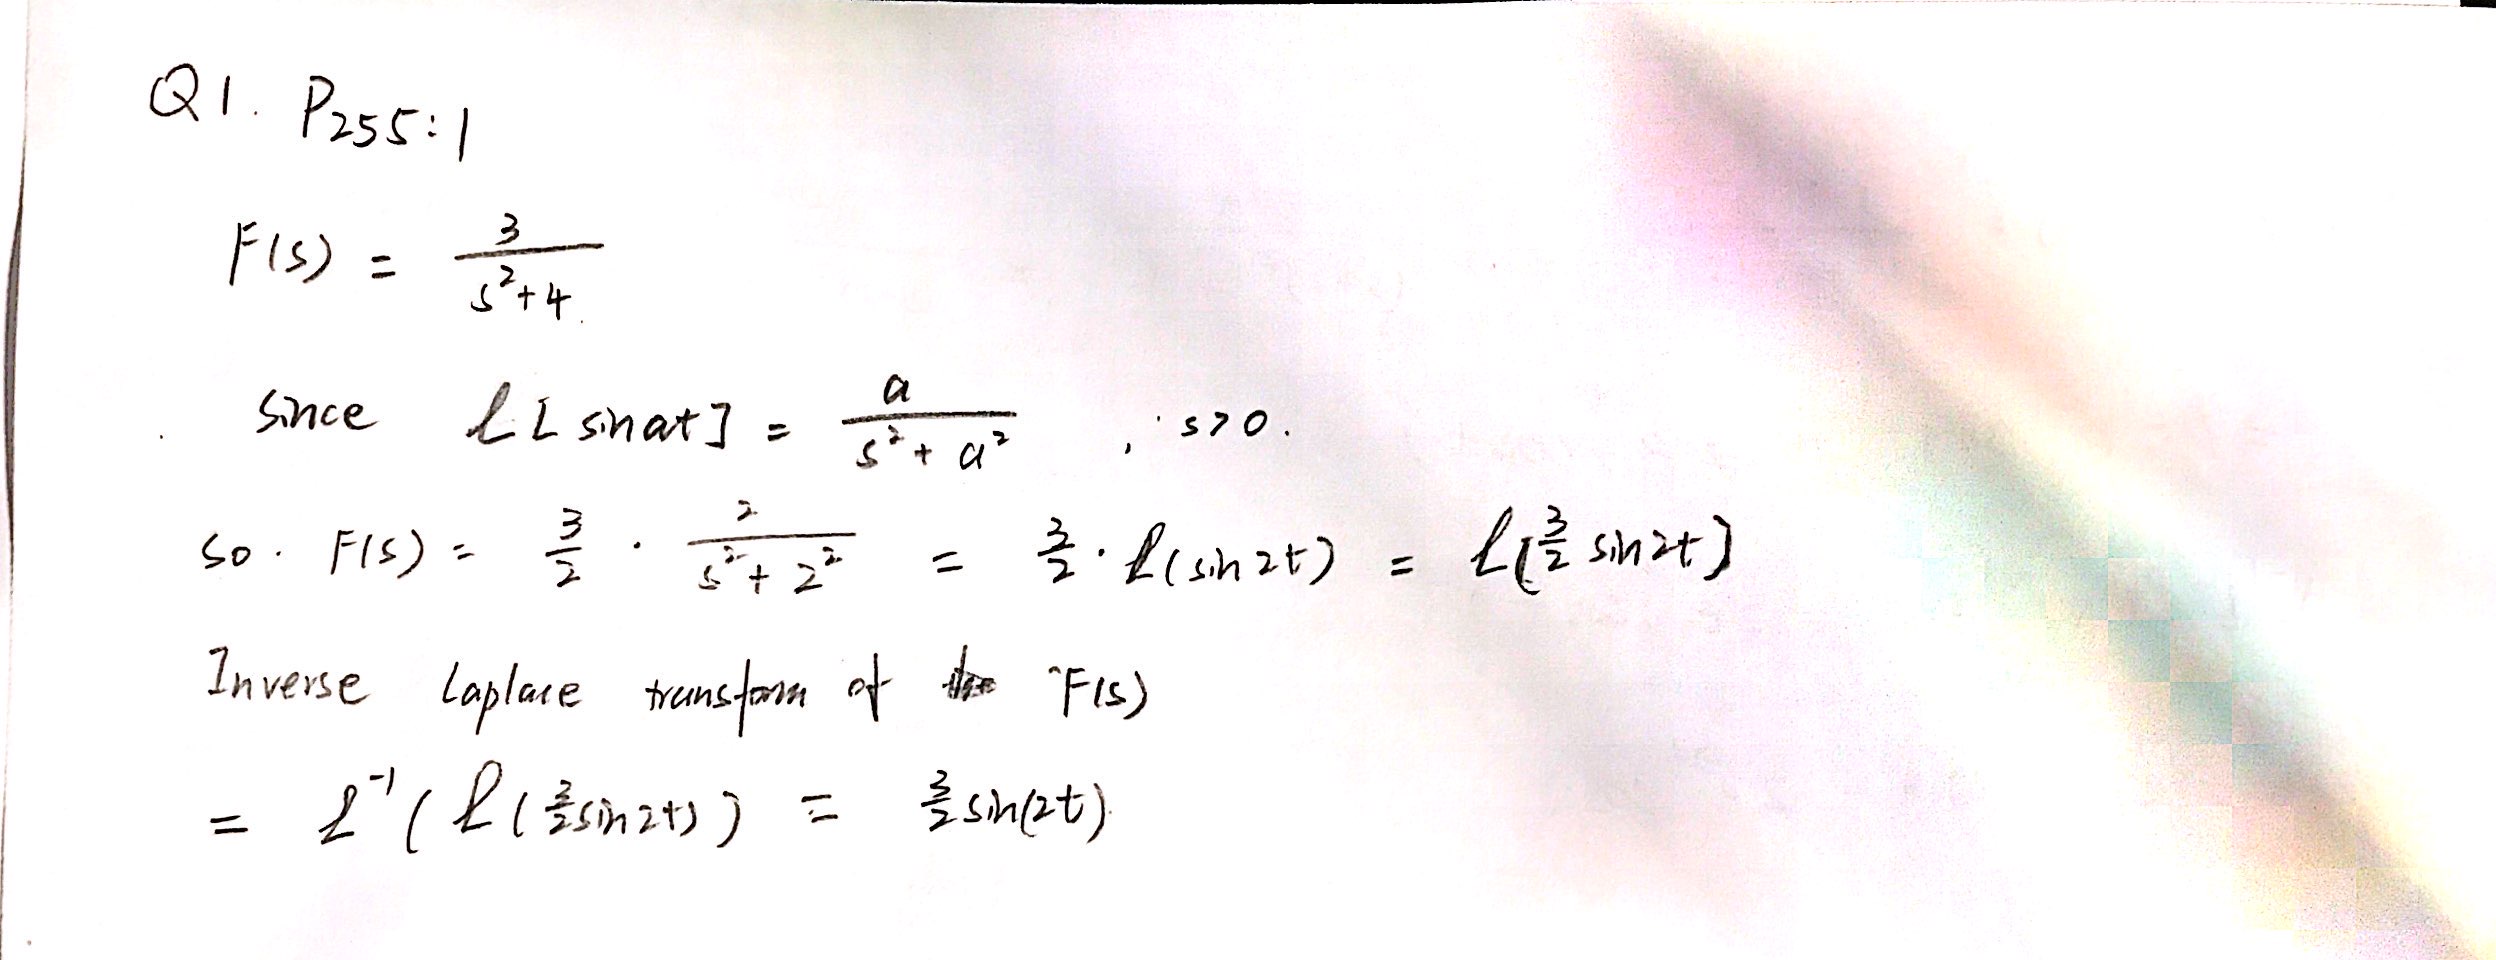 Q1. P255:1
F(s) = 3/(s²+4).
since ℒ[sinat] = a/(s²+a²), s>0.
so. F(s) = 3/2 · 2/(s²+2²) = 3/2 · ℒ(sin2t) = ℒ[3/2 sin2t]
Inverse Laplace transform of F(s)
= ℒ⁻¹(ℒ(3/2 sin2t)) = 3/2 sin(2t).